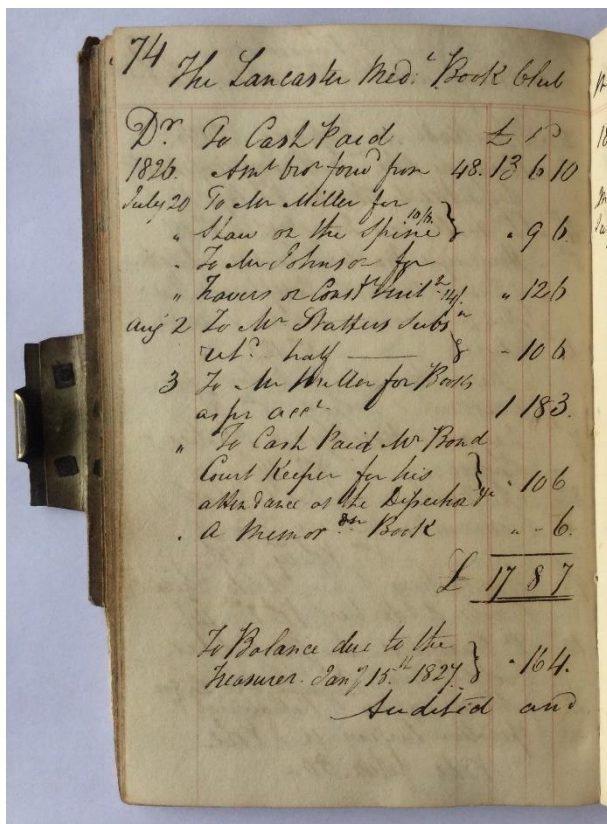 74
The Lancaster Med.l Book Club
Dr. To Cash Paid £ s
1826. Amt. bro.t forw.d from 48. 13 6 10
July 20 To Mr Miller for
" Shaw on the Spine 10/6. } " 9 6.
" To Mr Johnson for
" Travers on Const.l Irrit.n 14/. " 12 6
Aug 2 To Mr Statters Subs.n
ret.d half — } - 10 6
3 To Mr Miller for Books
as pr acc.t 1 18 3.
" To Cash Paid Mr Bond
Court Keeper for his
attendance at the Dissection } " 10 6
. A Memor.dm Book " - 6.
£ 17 8 7
To Balance due to the
Treasurer. Jany 15.th 1827. } " 16 4.
Audited and